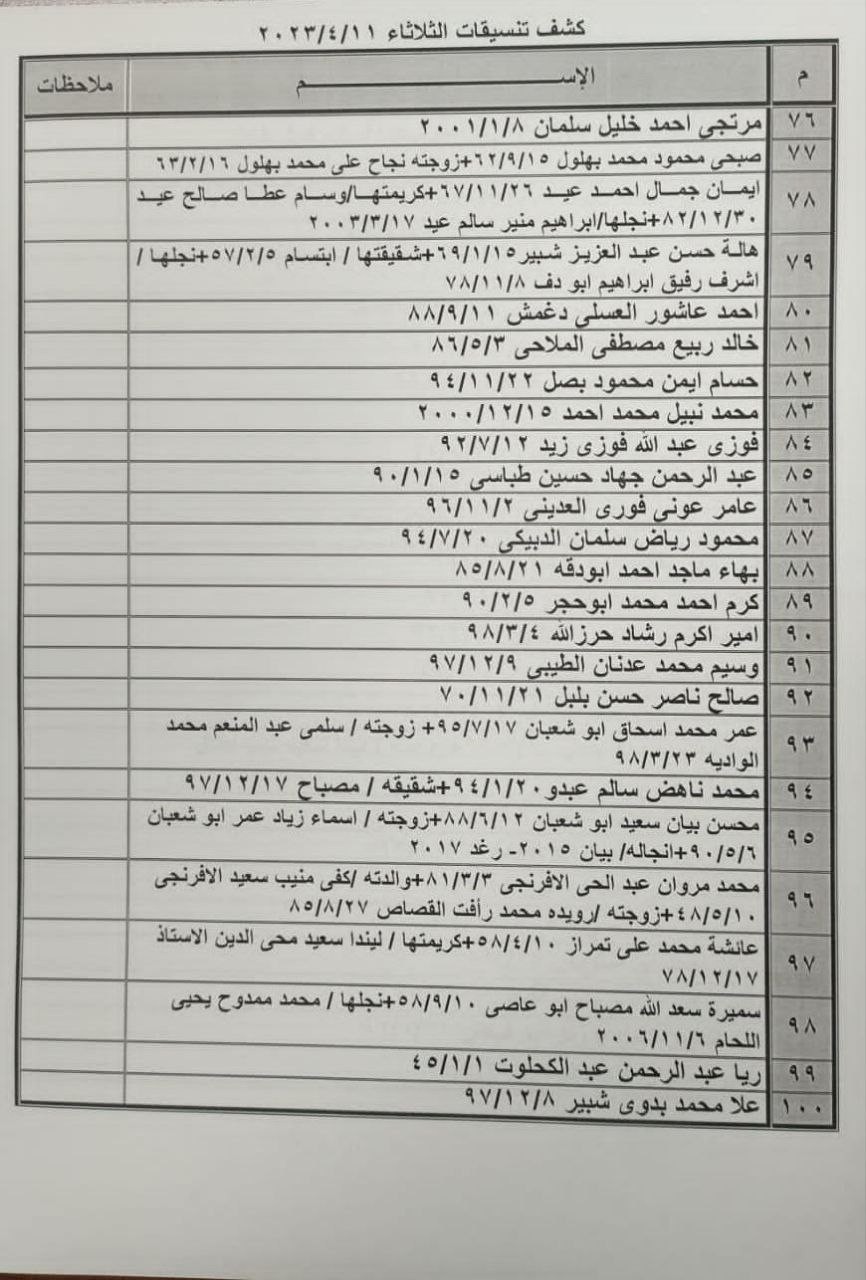 كشف تنسيقات الثلاثاء ٢٠٢٣/٤/١١
م الإســــم ملاحظات
٧٦ مرتجى احمد خليل سلمان ٢٠٠١/١/٨
٧٧ صبحى محمود محمد بهلول ٦٢/٩/١٥+زوجته نجاح على محمد بهلول ٦٣/٢/١٦
٧٨ ايمـان جمـال احمـد عيـد ٦٧/١١/٢٦+كريمتهـا/وسـام عطـا صـالح عيـد
٨٢/١٢/٣٠+نجلها/ابراهيم منير سالم عيد ٢٠٠٣/٣/١٧
٧٩ هالة حسن عبد العزيز شبير٦٩/١/١٥+شقيقتها / ابتسام ٥٧/٢/٥+نجلها /
اشرف رفيق ابراهيم ابو دف ٧٨/١١/٨
٨٠ احمد عاشور العسلى دغمش ٨٨/٩/١١
٨١ خالد ربيع مصطفى الملاحى ٨٦/٥/٣
٨٢ حسام ايمن محمود بصل ٩٤/١١/٢٢
٨٣ محمد نبيل محمد احمد ٢٠٠٠/١٢/١٥
٨٤ فوزى عبد الله فوزى زيد ٩٢/٧/١٢
٨٥ عبد الرحمن جهاد حسين طباسى ٩٠/١/١٥
٨٦ عامر عونى فورى العدينى ٩٦/١١/٢
٨٧ محمود رياض سلمان الدبيكى ٩٤/٧/٢٠
٨٨ بهاء ماجد احمد ابودقه ٨٥/٨/٢١
٨٩ كرم احمد محمد ابوحجر ٩٠/٢/٥
٩٠ امير اكرم رشاد حرزالله ٩٨/٣/٤
٩١ وسيم محمد عدنان الطيبى ٩٧/١٢/٩
٩٢ صالح ناصر حسن بلبل ٧٠/١١/٢١
٩٣ عمر محمد اسحاق ابو شعبان ٩٥/٧/١٧+ زوجته / سلمى عبد المنعم محمد
الواديه ٩٨/٣/٢٣
٩٤ محمد ناهض سالم عبدو٩٤/١/٢٠+شقيقه / مصباح ٩٧/١٢/١٧
٩٥ محسن بيان سعيد ابو شعبان ٨٨/٦/١٢+زوجته / اسماء زياد عمر ابو شعبان
٩٠/٥/٦+انجاله/ بيان ٢٠١٥- رغد ٢٠١٧
٩٦ محمد مروان عبد الحى الافرنجى ٨١/٣/٣+والدته /كفى منيب سعيد الافرنجى
٤٨/٥/١٠+زوجته /رويده محمد رأفت القصاص ٨٥/٨/٢٧
٩٧ عائشة محمد على تمراز ٥٨/٤/١٠+كريمتها / ليندا سعيد محى الدين الاستاذ
٧٨/١٢/١٧
٩٨ سميرة سعد الله مصباح ابو عاصى ٥٨/٩/١٠+نجلها / محمد ممدوح يحيى
اللحام ٢٠٠٦/١١/٦
٩٩ ريا عبد الرحمن عبد الكحلوت ٤٥/١/١
١٠٠ علا محمد بدوى شبير ٩٧/١٢/٨